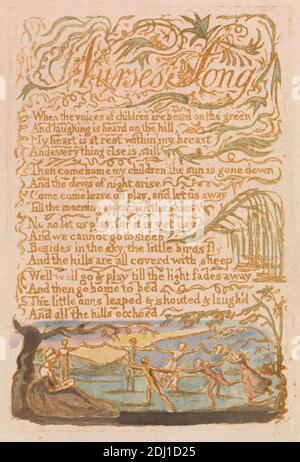 Nurses Song
When the voices of children are heard on the green
And laughing is heard on the hill
My heart is at rest within my breast
And every thing else is still
Then come home my children the sun is gone down
And the dews of night arise
Come come leave off play, and let us away
Till the morning appears in the skies
No no let us play, for it is yet day
And we cannot go to sleep
Besides in the sky, the little birds fly
And the hills are all coverd with sheep
Well well go & play till the light fades away
And then go home to bed
The little ones leaped & shouted & laugh'd
And all the hills ecchoed
2DJ1D25